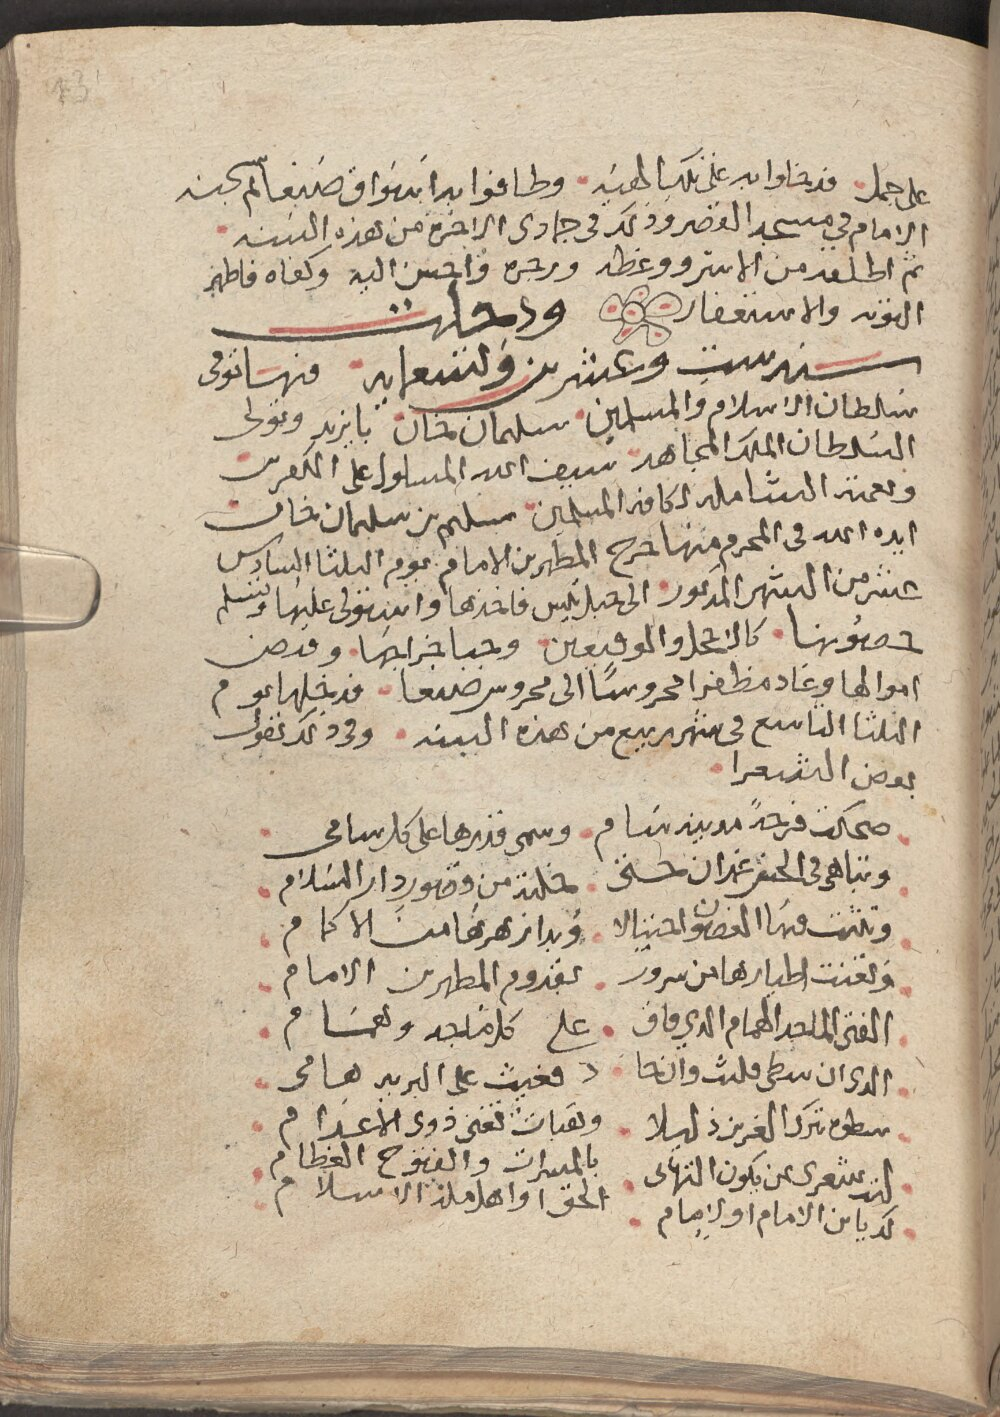 على جمل فدخلوا به على تلك الهيئه وطافوا به اسواق صنعا ثم سجنه
الامام في مسجد القصر وذلك في جمادى الاخرة من هذه السنه
ثم اطلقه من الاسر ووعظه وزجره واحسن اليه وكفاه فاظهر
التوبه والاستغفار ودخلت
سنه ست وعشرين وتسعمايه فيها توفى
سلطان الاسلام والمسلمين سليمان خان بايزيد وتولى
السلطان الملك المجاهد سيف الله المسلول على الكفرين
ونعمته الشامله لكافه المسلمين سليم بن سليمان خان
ايده الله فى المحرم منها خرج المطهر بن الامام يوم الثلثا السادس
عشر من الشهر المذكور الى جبل تيس فاخذها واستولى عليها وتسلم
حصونها كالاعجل والموقعين وجبا خراجها وقبض
اموالها وعاد مظفرا محروسا الى محروس صنعا فدخلها يوم
الثلثا التاسع فى شهر ربيع من هذه السنه وفى ذلك يقول
بعض الشعرا
ضحكت فرحة مدينه سام وسمى قدرها على كل سامى
وتباهى فى الحسن غمدان حتى خلته من قصور دار السلام
وتثنت فيها الغصون اختيالا وبدا زهرها من الاكمام
وتغنت اطيارها من سرور بقدوم المطهر بن الامام
الفتى الماجد الهمام الذي فاق على كل ماجد وهمام
الذى ان سطى فليث وان جا د فغيث على البريه هامى
سطوه تترك العزيز ذليلا وهبات تغنى ذوى الاعدام
ليت شعرى لمن يكون التهانى بالمسرات والفتوح العظام
لك يا بن الامام او لامام الحق او اهل ملة الاسلام